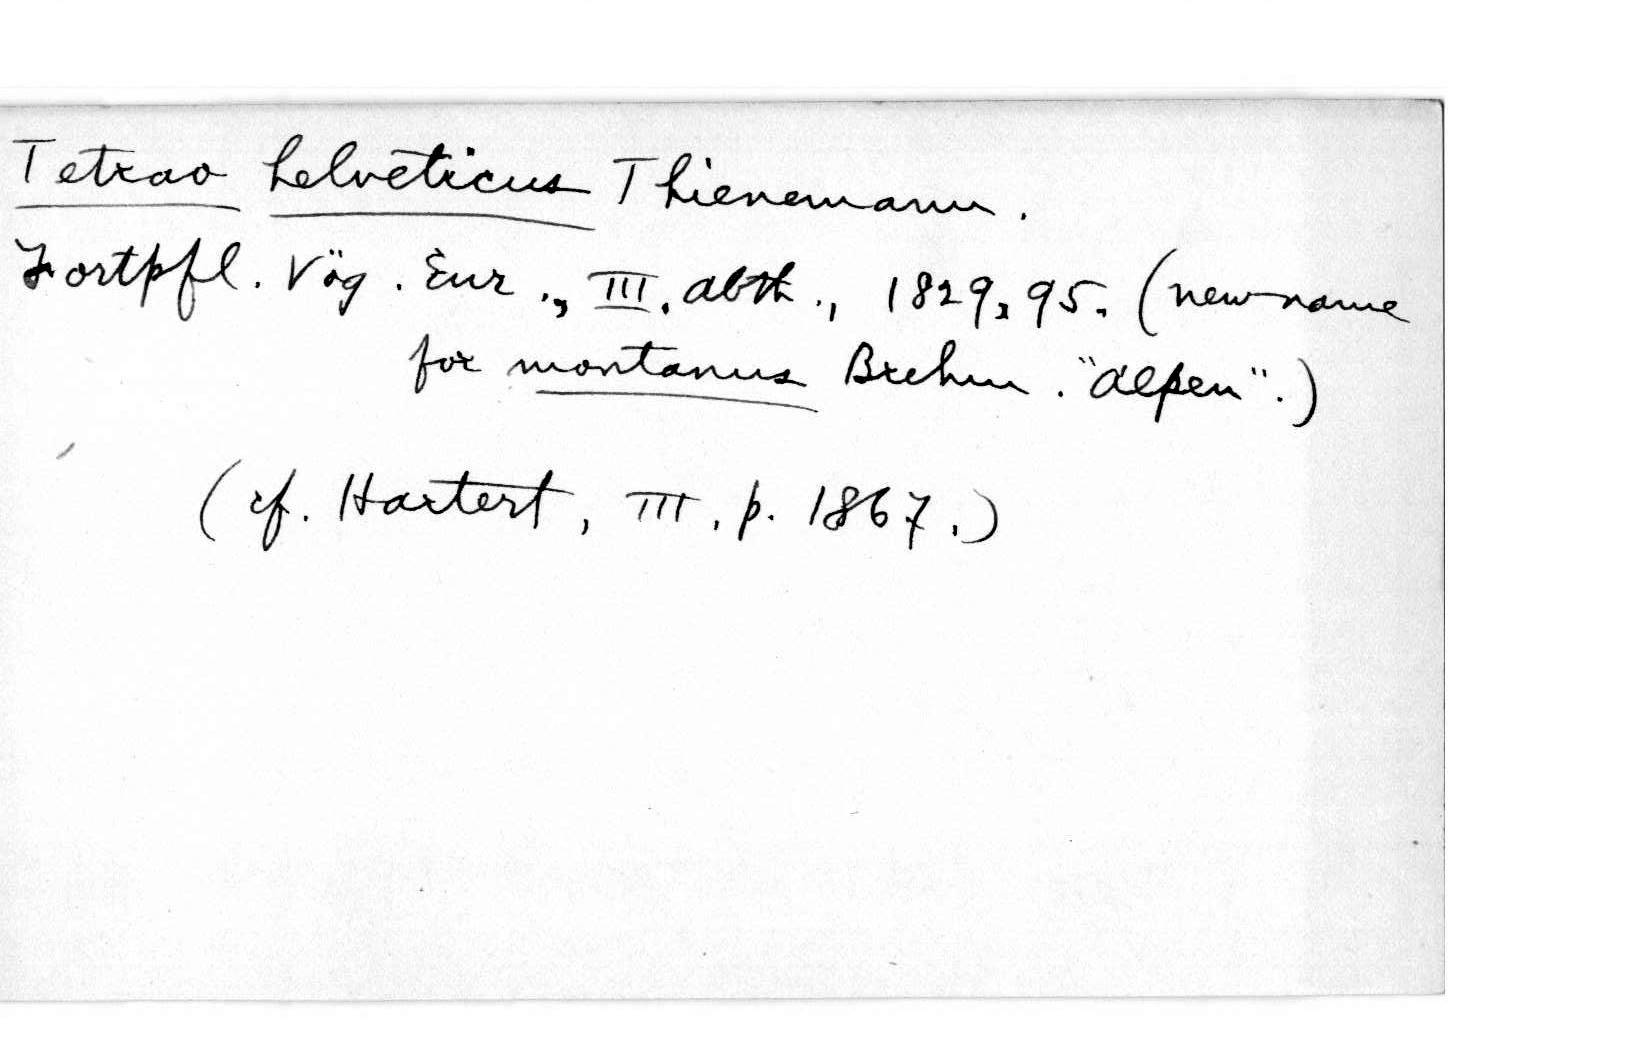 Tetrao helveticus Thienemann.
Fortpfl. Vög. Eur., III. abth., 1829, 95. (new name
for montanus Brehm. "Alpen".)
(cf. Hartert, III. p. 1867.)